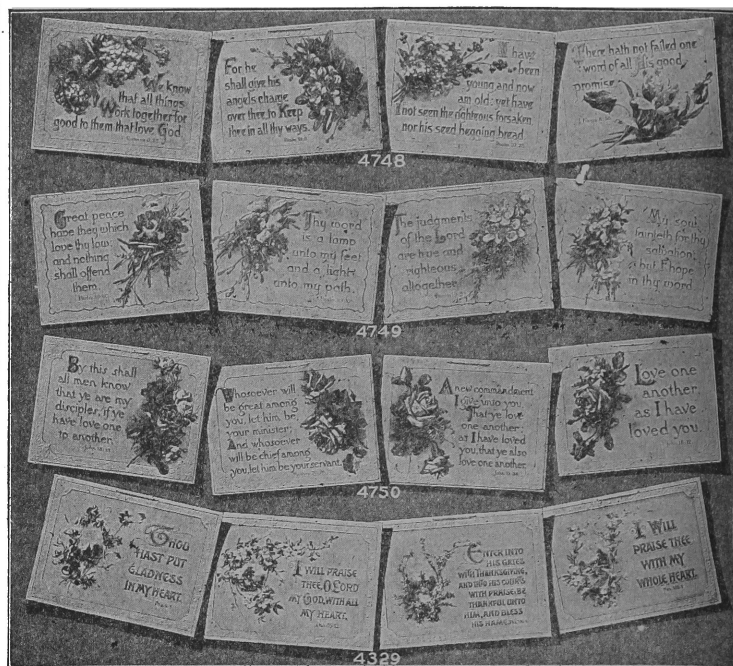 We know
that all things
Work together for
good to them that love God.
For he
shall give his
angels charge
over thee, to Keep
thee in all thy ways.
I have
been
young and now
am old; yet have
I not seen the righteous forsaken
nor his seed begging bread.
There hath not failed one
word of all His good
promise
4748
Great peace
have they which
love thy law:
and nothing
shall offend
them.
Thy word
is a lamp
unto my feet
and a light
unto my path.
The judgments
of the Lord
are true and
righteous
altogether.
My soul
fainteth for thy
salvation:
but I hope
in thy word.
4749
By this shall
all men know
that ye are my
disciples, if ye
have love one
to another.
Whosoever will
be great among
you, let him be
your minister;
And whosoever
will be chief among
you, let him be your servant.
A new commandment
I give unto you
That ye love
one another;
as I have loved
you, that ye also
love one another.
Love one
another
as I have
loved you.
4750
THOU
HAST PUT
GLADNESS
IN MY HEART.
I WILL PRAISE
THEE O LORD
MY GOD, WITH ALL
MY HEART.
ENTER INTO
HIS GATES
WITH THANKSGIVING,
AND INTO HIS COURTS
WITH PRAISE: BE
THANKFUL UNTO
HIM, AND BLESS
HIS NAME.
I WILL
PRAISE THEE
WITH MY
WHOLE HEART.
4329